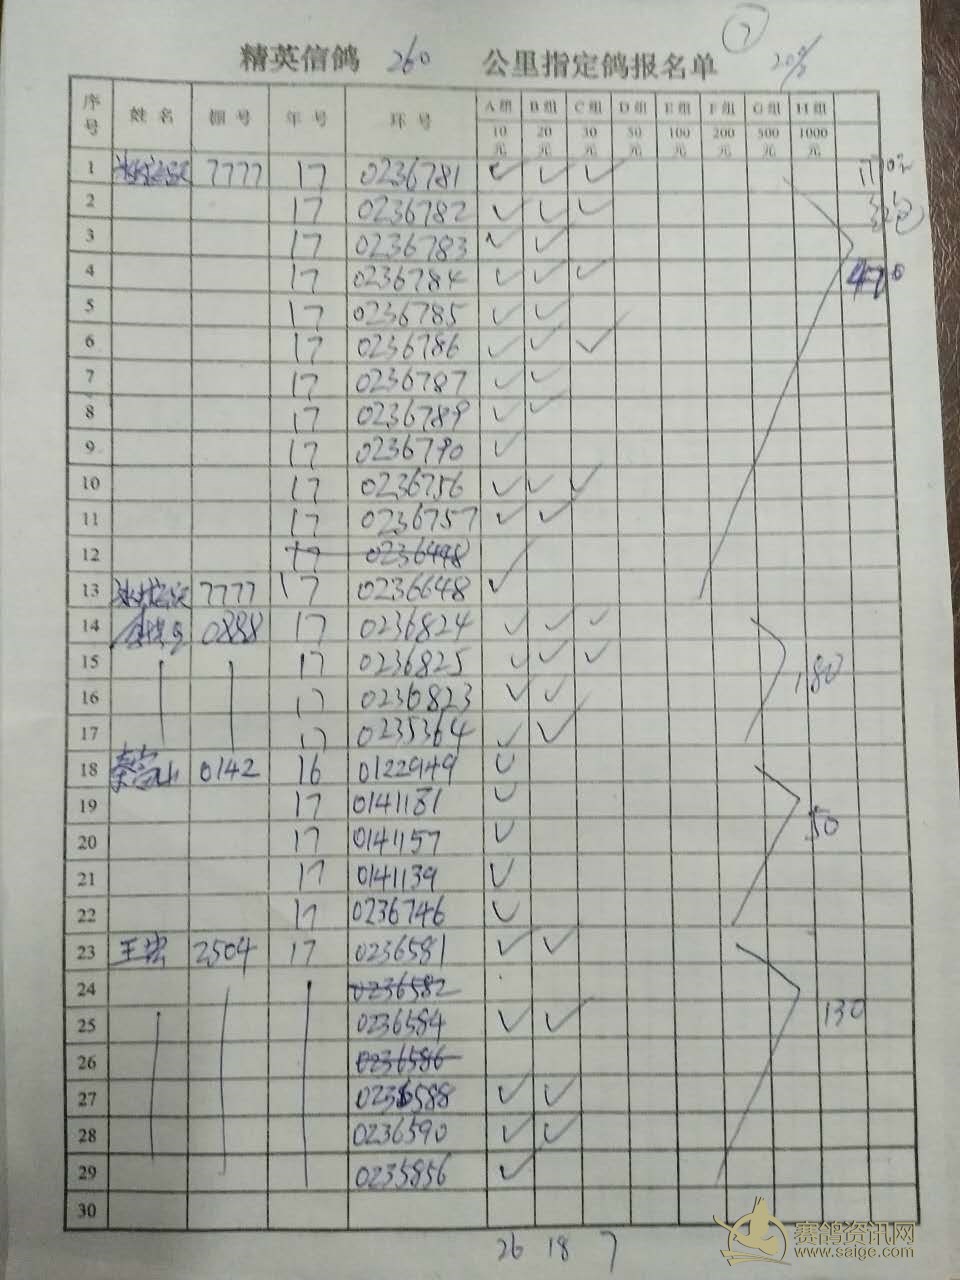 7
精英信鸽 260 公里指定鸽报名单
序号 姓名 棚号 年号 环号 A组 B组 C组 D组 E组 F组 G组 H组
10元 20元 30元 50元 100元 200元 500元 1000元
1 7777 17 0236781 ✓ ✓ ✓
2 17 0236782 ✓ ✓ ✓
3 17 0236783 ✓ ✓
4 17 0236784 ✓ ✓ ✓
5 17 0236785 ✓ ✓
6 17 0236786 ✓ ✓ ✓
7 17 0236787 ✓ ✓
8 17 0236789 ✓ ✓
9 17 0236790 ✓
10 17 0236756 ✓ ✓ ✓
11 17 0236757 ✓ ✓
12 17
13 7777 17 0236648 ✓
14 0888 17 0236824 ✓ ✓ ✓
15 17 0236825 ✓ ✓ ✓
180
16 17 0236823 ✓ ✓
17 17 0235364 ✓ ✓
18 0142 16 0122949 ✓
19 17 0141181 ✓
20 17 0141157 ✓
50
21 17 0141139 ✓
22 17 0236746 ✓
23 王宏 2504 17 0236581 ✓ ✓
24 0236582
25 0236584 ✓ ✓
130
26 0236586
27 0236588 ✓ ✓
28 0236590 ✓ ✓
29 0235856 ✓
30
26 18 7
赛鸽资讯网
www.saige.com